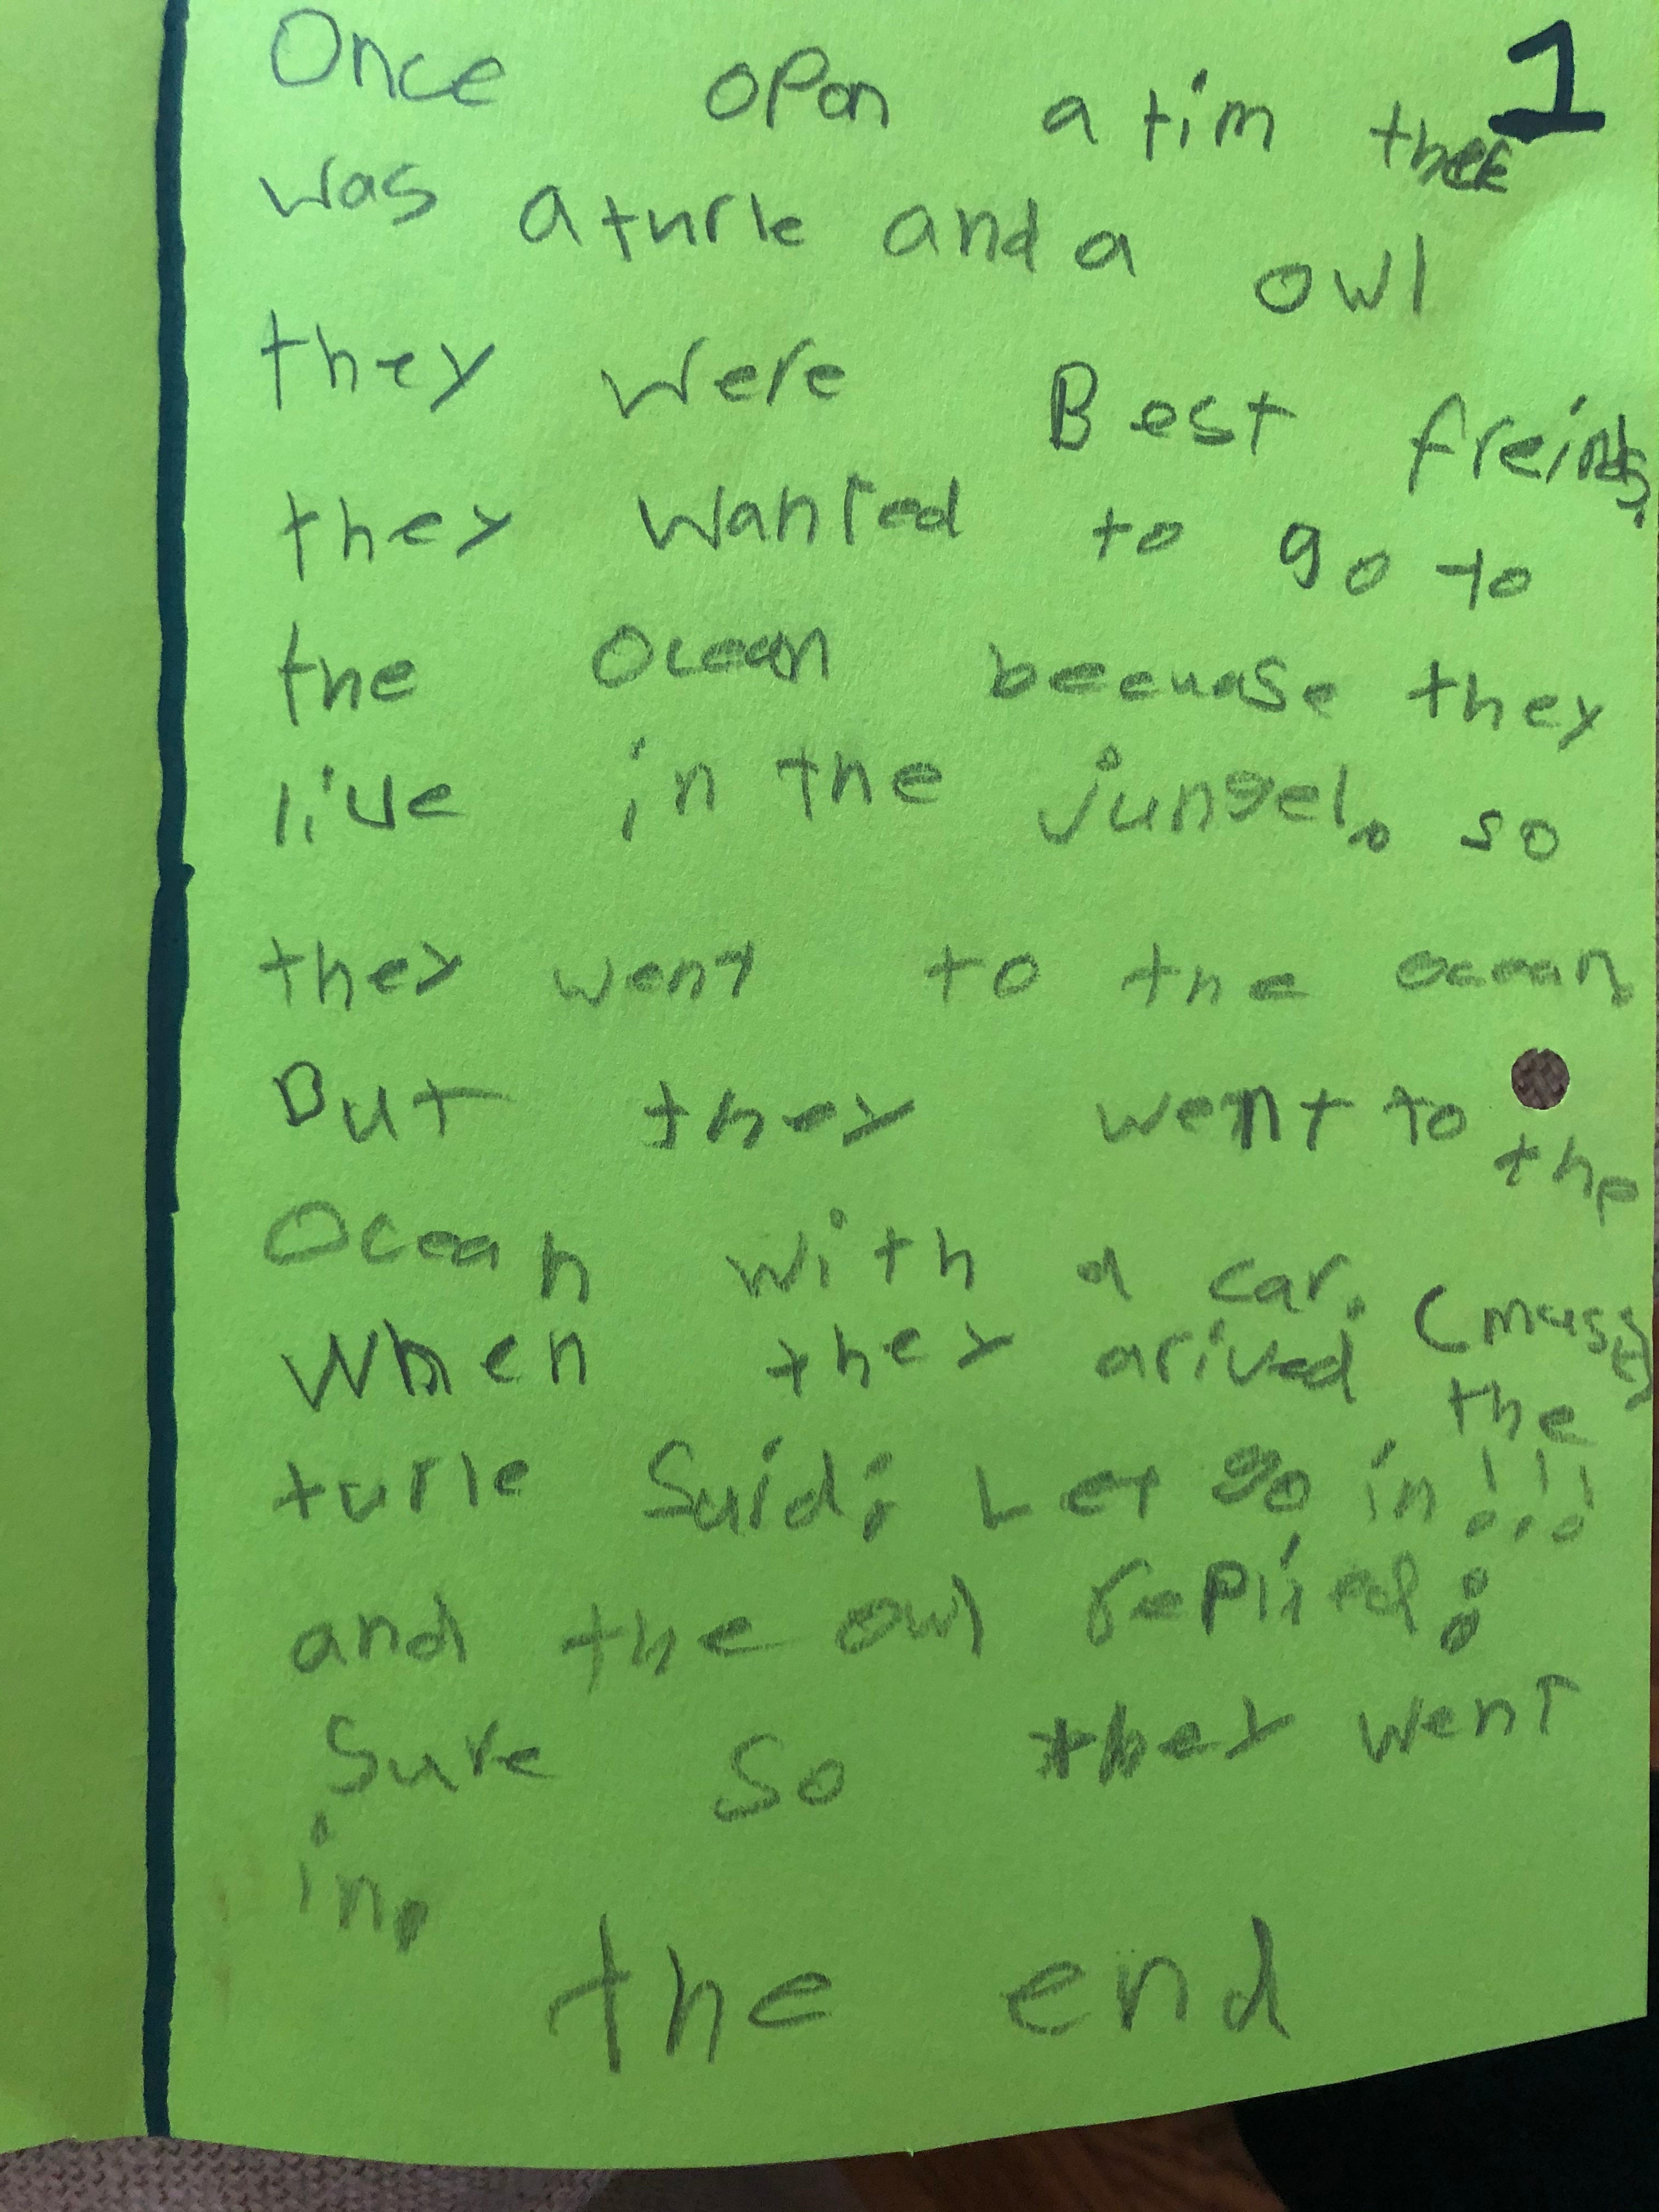 1
Once opon a tim thee
was a turle and a owl
they were Best freinds,
they wanted to go to
the Ocean becuase they
live in the jungel. so
they went to the ocean
But they went to the
Ocean with a car.
When they arived the
turle Suid: Let go in!!!
and the owl replied:
Sure So they went
in.
the end